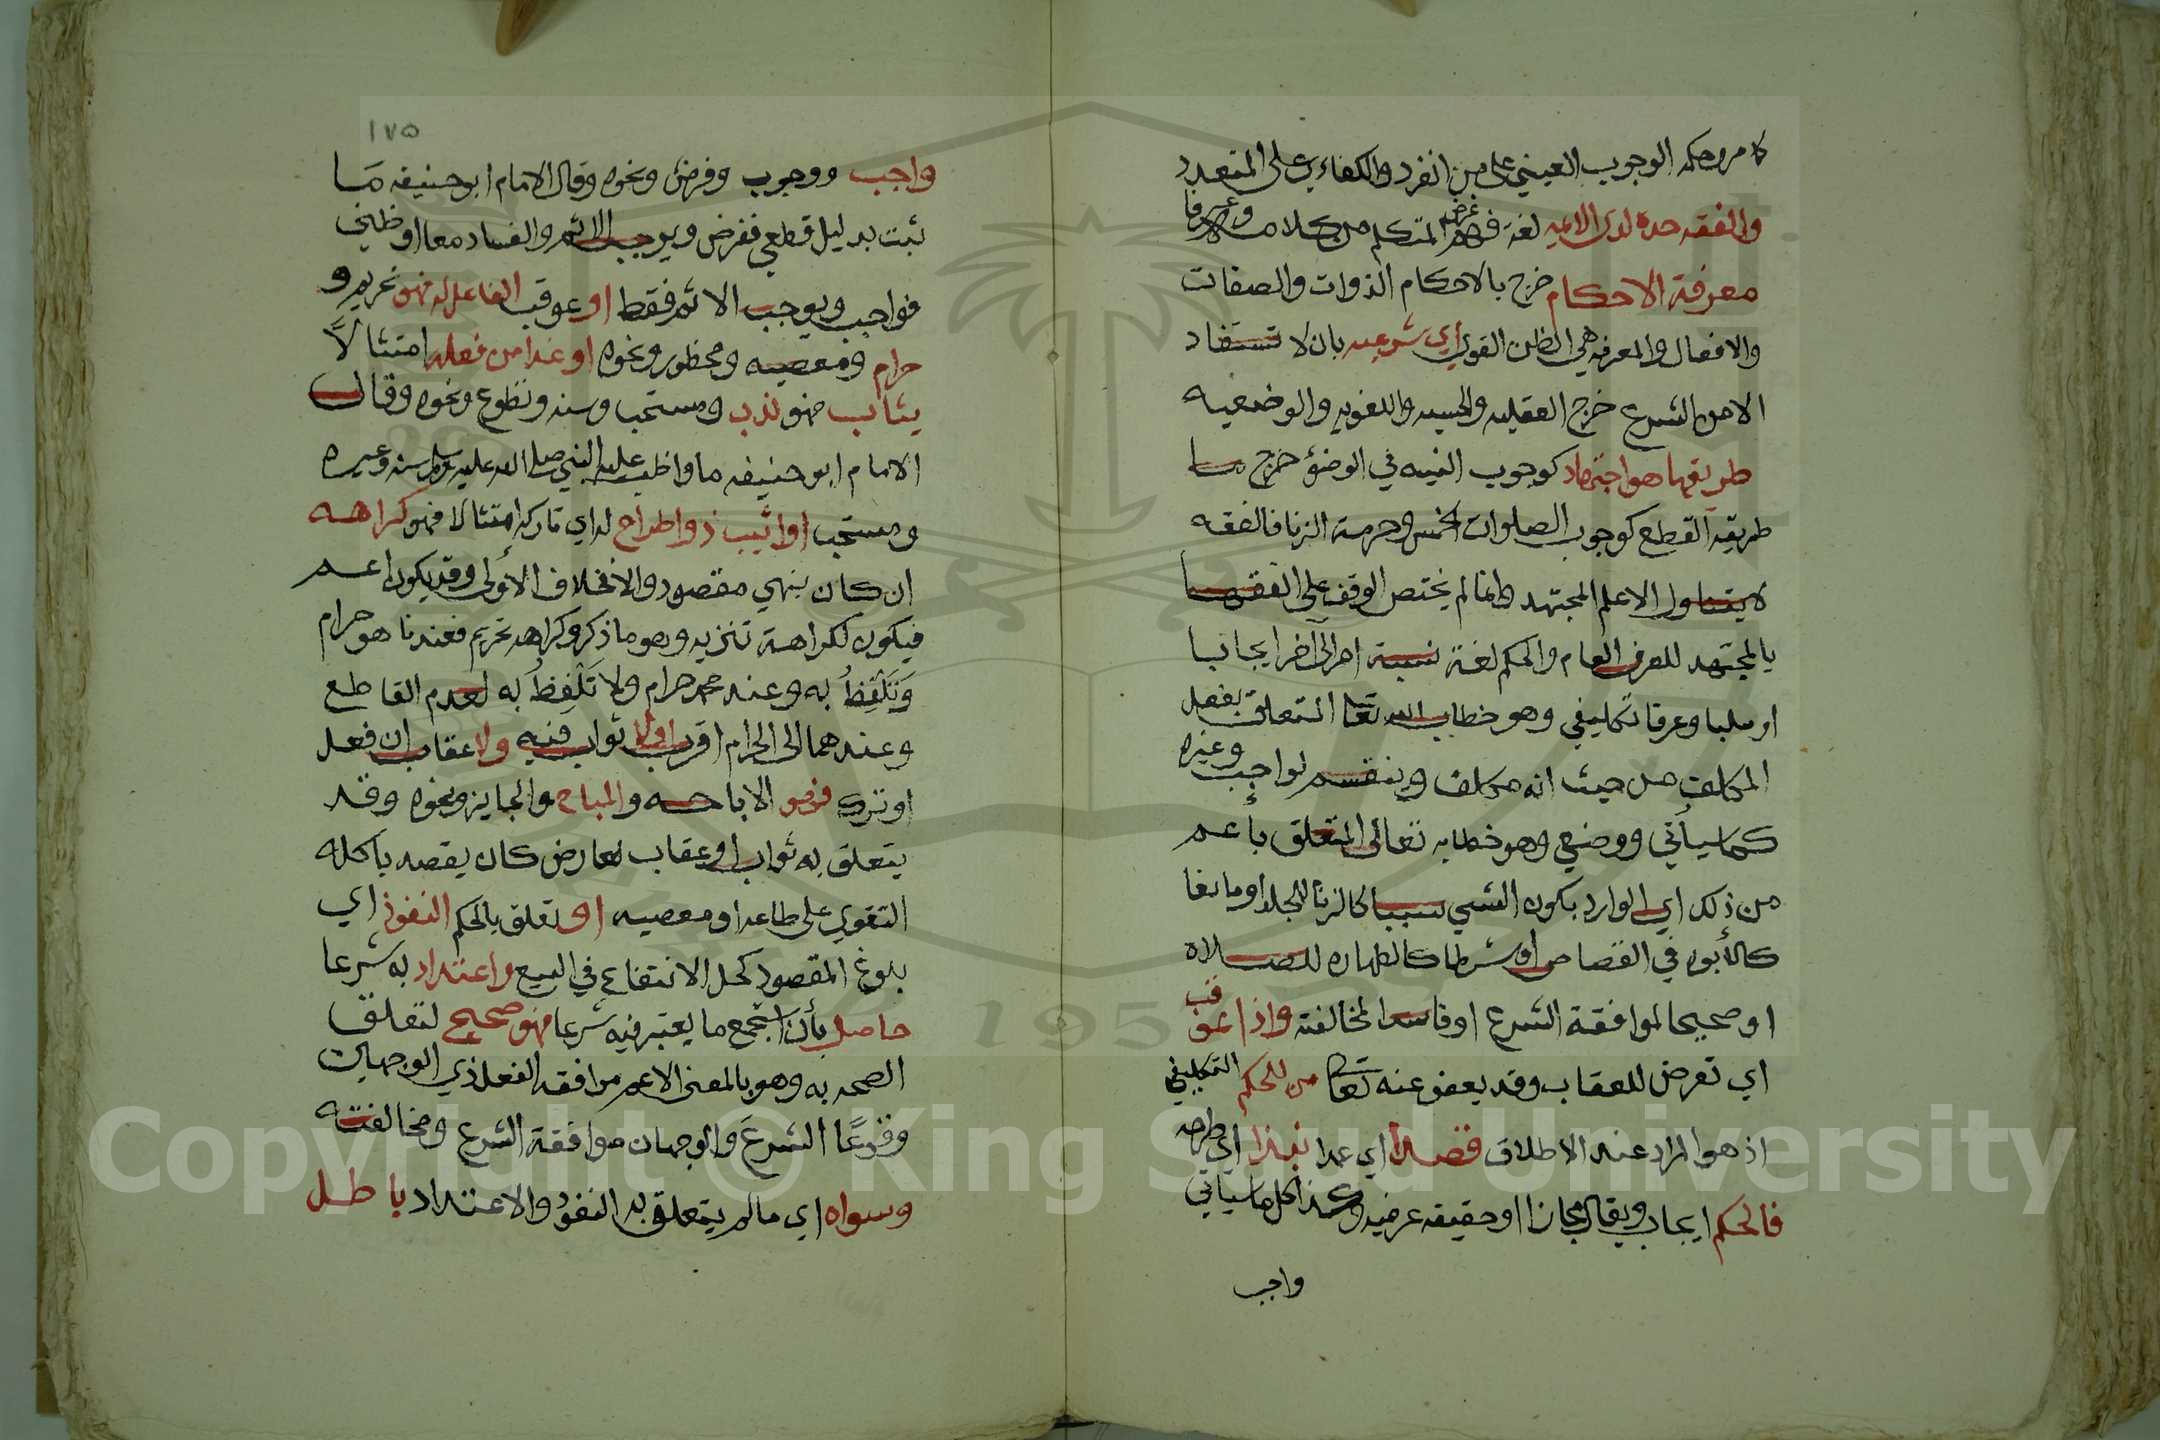 كامر وحكمه الوجوب العيني على من انفرد والكفاءي على المتعدد
والفقه حده لدى الائمه لغة فهم غرض المتكلم من كلامه وعرفا
معرفة الاحكام خرج بالاحكام الذوات والصفات
والافعال والمعرفه هي الظن القوي اي شرعيه بان لا تستفاد
الا من الشرع خرج العقليه والحسيه واللغويه والوضعيه
طريقها هو اجتهاد كوجوب النيه في الوضؤ خرج ما
طريقه القطع كوجوب الصلوات الخمس وحرمة الزنا فالفقه
لا يتناول الا علم المجتهد وانما لم يختص الوقف على الفقها
بالمجتهد للعرف العام والحكم لغة نسبة امر الى اخر ايجابا
او سلبا وعرفا تكليفي وهو خطاب الله تعا المتعلق بفعل
المكلف من حيث انه مكلف وينقسم لواجب وغيره
كما سيأتي ووضعي وهو خطابه تعالى المتعلق بأعم
من ذلك اي الوارد بكون الشي سببا كالزنا للجلد او مانعا
كالأبوه في القصاص او شرطا كالطهاره للصلاه
او صحيحا لموافقة الشرع او فاسدا لمخالفته واذا عوقب
اي تعرض للعقاب وقد يعفو عنه تعا من للحكم التكليفي
اذ هو المراد عند الاطلاق قصدا اي عمدا نبذا اي طرحه
فالحكم ايجاب ويقال مجازا او حقيقه عرفيه وكذا كل ما سياتي
واجب
١٧٥
واجب ووجوب وفرض ونحوه وقال الامام ابو حنيفه ما
ثبت بدليل قطعي ففرض ويوجب الاثم والفساد معا او ظني
فواجب ويوجب الاثم فقط او عوقب الفاعل له فهو تحريم و
حرام ومعصيه ومحظور ونحوه او غدا من فعله امتثالًا
يثاب فهو ندب ومستحب وسنه وتطوع ونحوه وقال
الامام ابو حنيفه ما واظب عليه النبي صلى الله عليه وسلم سنه وغيره
ومستحب او اثيب ذو اطراح له اي تاركه امتثالا فهو كراهه
ان كان بنهي مقصود والا فخلاف الأولى وقد يكون اعم
فيكون لكراهة تنزيه وهو ما ذكر وكراهه تحريم فعندنا هو حرام
وَنَتَلَفَّظُ به وعند محمد حرام ولا تَلْفِظُ به لعدم القاطع
وعندهما الى الحرام اقرب اولا ثواب فيه ولا عقاب ان فعل
او ترك فهو الاباحه والمباح والجايز ونحوه وقد
يتعلق به ثواب او عقاب لعارض كان يقصد باكله
التقوي على طاعه او معصيه او تعلق بالحكم النفوذ اي
بلوغ المقصود كحل الانتفاع في البيع واعتداد به شرعا
حاصل بأن استجمع ما يعتبر فيه شرعا فهو صحيح لتعلق
الصحه به وهو بالمعنى الاعم موافقه الفعل ذي الوجهين
وقوعًا الشرعَ والوجهان موافقة الشرع ومخالفته
وسواه اي ما لم يتعلق به النفوذ والاعتداد باطل
Copyright © King Saud University